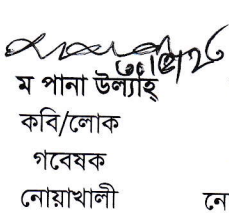 ম পানা উল্যাহ্
কবি/লোক
গবেষক
নোয়াখালী নে